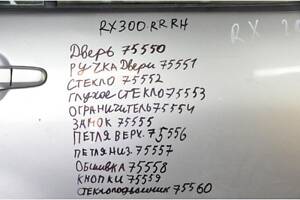 RX300 RR RH
RX 30
Дверь 75550
Ручка Двери 75551
СТЕКЛО 75552
ГЛУХОЕ СТЕКЛО 75553
ОГРАНИЧИТЕЛЬ 75554
ЗАМОК 75555
ПЕТЛЯ ВЕРХ. 75556
ПЕТЛЯ НИЗ. 75557
ОБШИВКА 75558
КНОПКИ 75559
СТЕКЛОПОДЪЕМНИК 75560